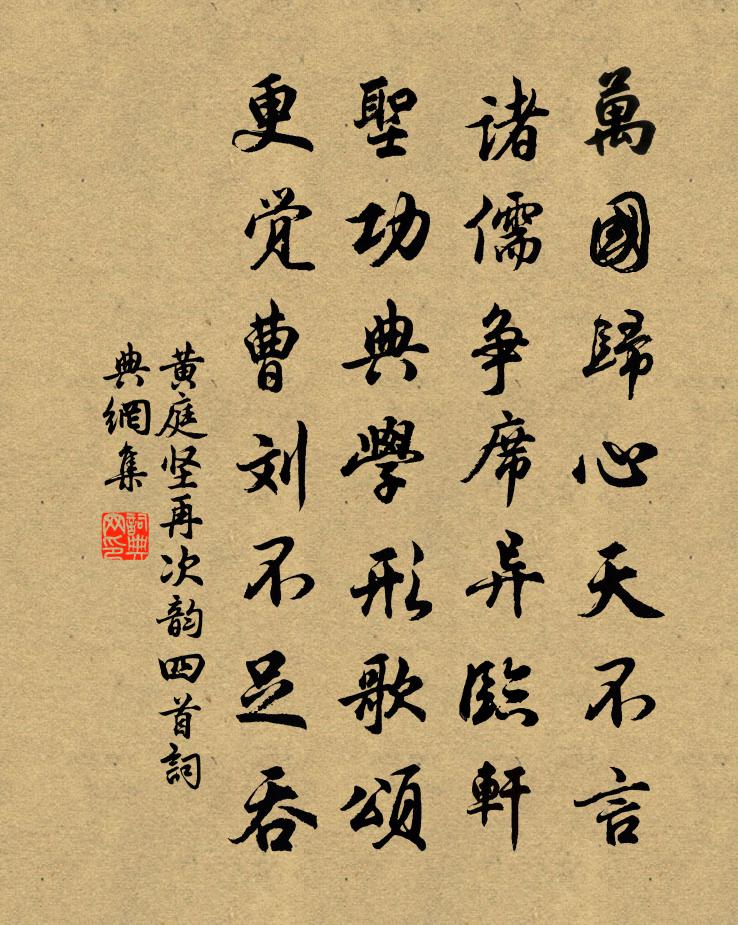 萬國歸心天不言
诸儒争席异臨軒
聖功典學形歌頌
更觉曹刘不足吞
黄庭坚再次韵四首詞
典網集
詞典网印